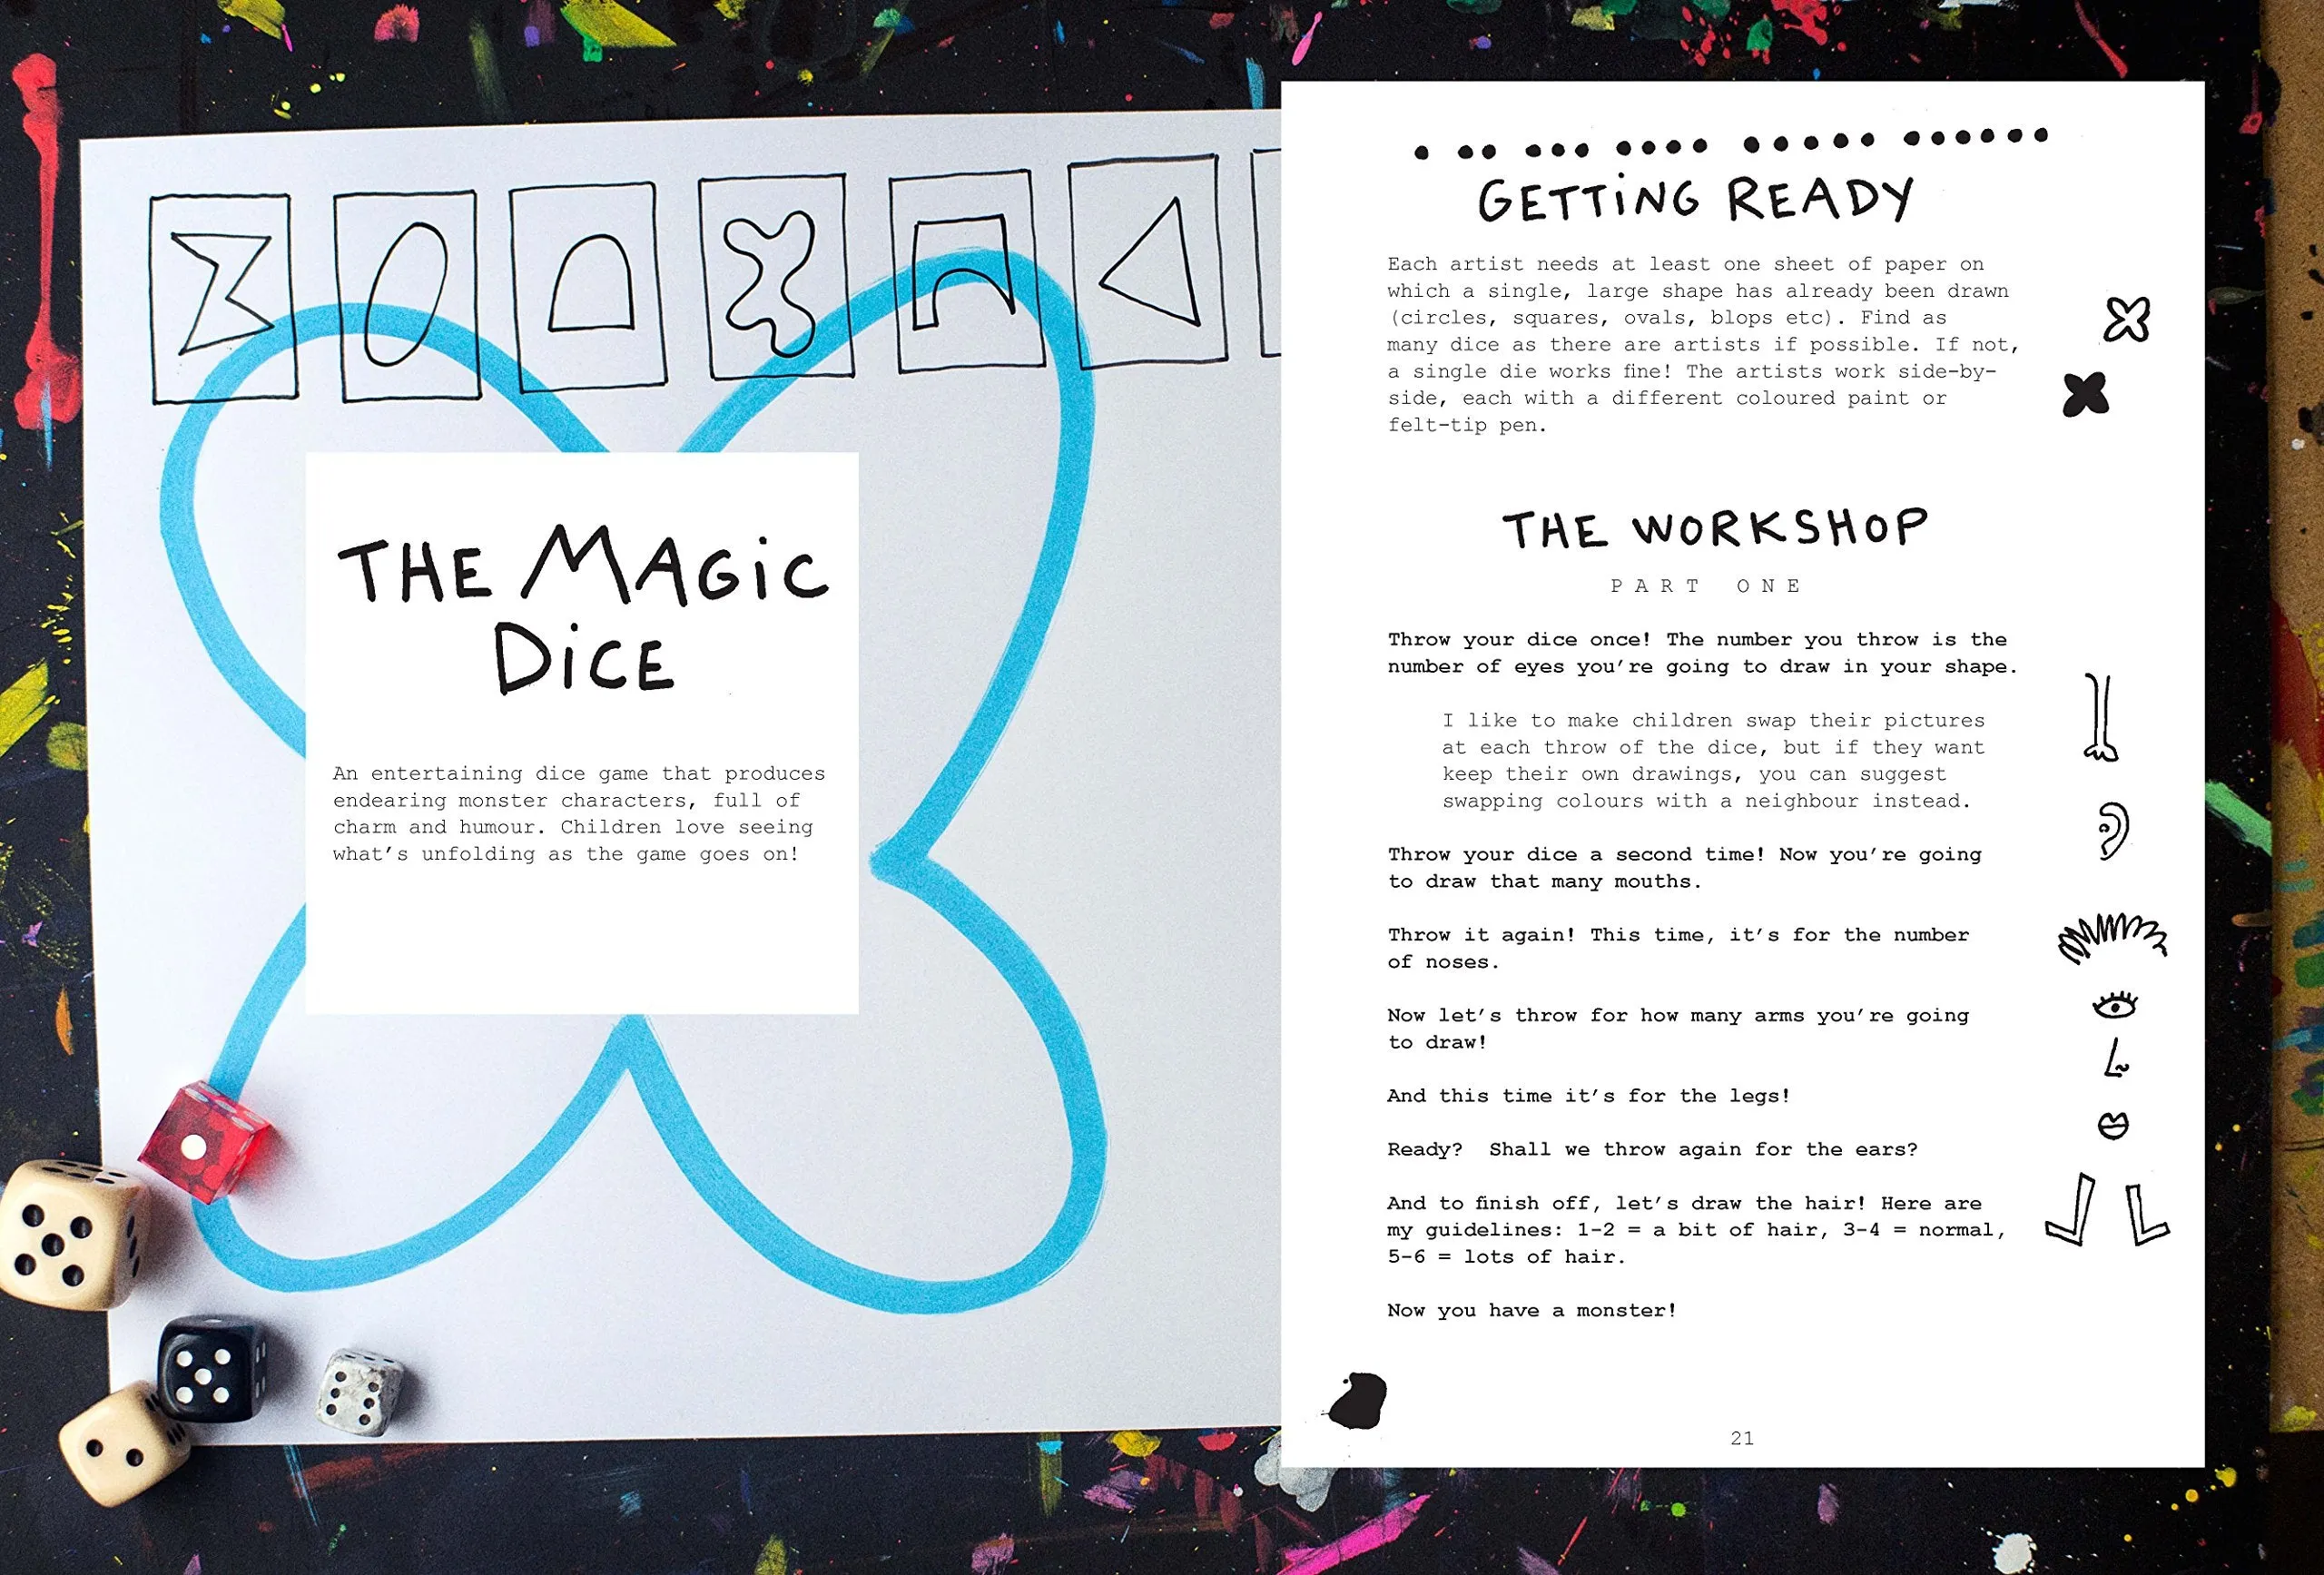 THE MAGiC
DiCE
An entertaining dice game that produces
endearing monster characters, full of
charm and humour. Children love seeing
what's unfolding as the game goes on!
GETTiNG READY
Each artist needs at least one sheet of paper on
which a single, large shape has already been drawn
(circles, squares, ovals, blops etc). Find as
many dice as there are artists if possible. If not,
a single die works fine! The artists work side-by-
side, each with a different coloured paint or
felt-tip pen.
THE WORKSHOP
PART ONE
Throw your dice once! The number you throw is the
number of eyes you're going to draw in your shape.
I like to make children swap their pictures
at each throw of the dice, but if they want
keep their own drawings, you can suggest
swapping colours with a neighbour instead.
Throw your dice a second time! Now you're going
to draw that many mouths.
Throw it again! This time, it's for the number
of noses.
Now let's throw for how many arms you're going
to draw!
And this time it's for the legs!
Ready?  Shall we throw again for the ears?
And to finish off, let's draw the hair! Here are
my guidelines: 1-2 = a bit of hair, 3-4 = normal,
5-6 = lots of hair.
Now you have a monster!
21